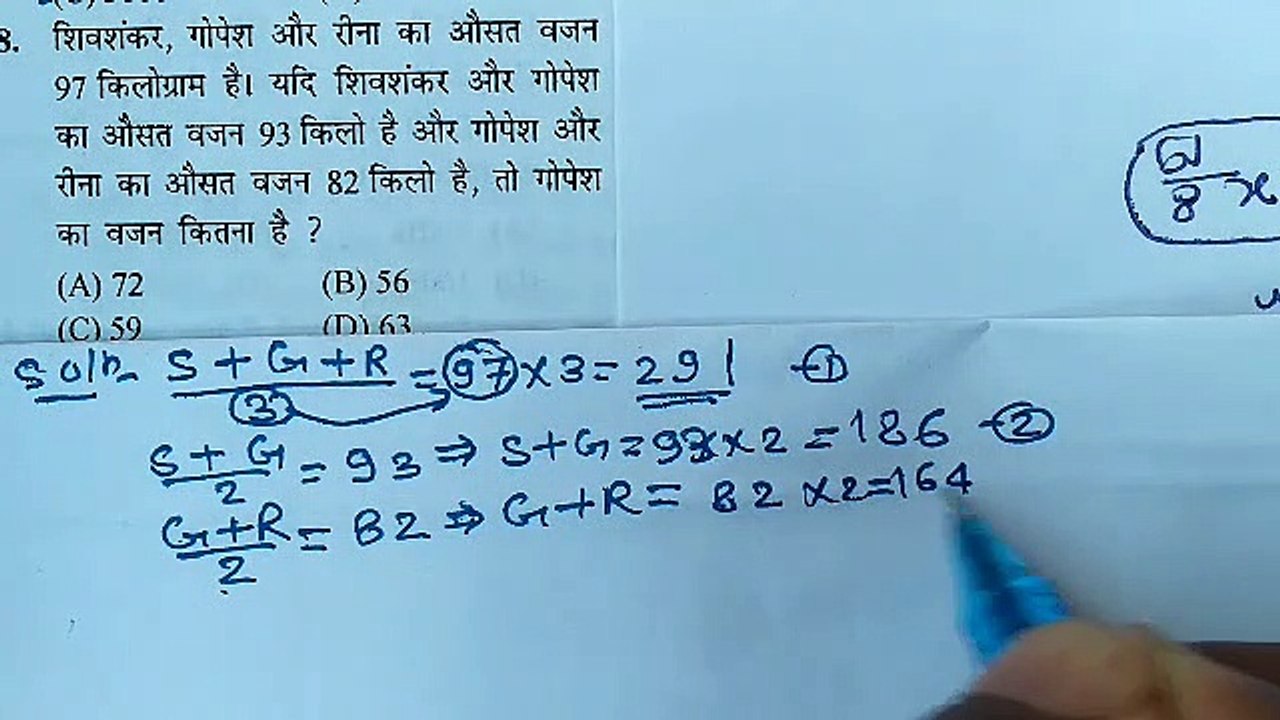 8. शिवशंकर, गोपेश और रीना का औसत वजन
97 किलोग्राम है। यदि शिवशंकर और गोपेश
का औसत वजन 93 किलो है और गोपेश और
रीना का औसत वजन 82 किलो है, तो गोपेश
का वजन कितना है ?
(A) 72 (B) 56
(C) 59 (D) 63
Soln S + G + R / 3 = 97 × 3 = 291 - 1
S + G / 2 = 93 ⇒ S + G = 93 × 2 = 186 - 2
G + R / 2 = 82 ⇒ G + R = 82 × 2 = 164